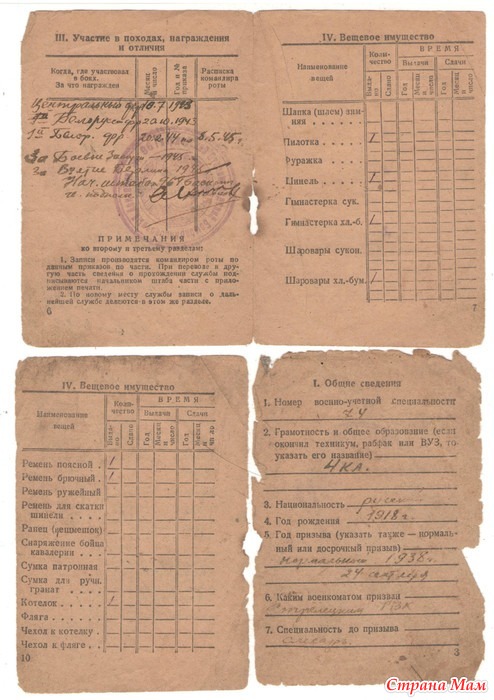 III. Участие в походах, награждения
и отличия
Когда, где участвовал
в боях.
За что награжден
Месяц
и
число
Год и №
приказа
Расписка
командира
роты
Центральный фр 10.7.1943
Белорус. фр 20.10.1943
1й Белор. фр. 20.2.44 5.5.45г.
За Боевые 1945
За Взятие Берлина 1945
Нач. штаба
ПРИМЕЧАНИЯ
ко второму и третьему разделам:
1. Записи производятся командиром роты по
данным приказов по части. При переводе в дру-
гую часть сведения о прохождении службы подпи-
сываются начальником штаба части с прило-
жением печати.
2. По новому месту службы записи о даль-
нейшей службе делаются в этом же разделе.
6
IV. Вещевое имущество
Наименование
вещей
Коли-
чество
ВРЕМЯ
Выдачи
Сдачи
Выда-
но
Сдано
Год
Месяц
и
число
Год
Месяц
и
число
Шапка (шлем) зим-
няя
Пилотка 1
Фуражка
Шинель 1
Гимнастерка сук.
Гимнастерка хл.-б. 1
Шаровары сукон.
Шаровары хл.-бум. 1
7
IV. Вещевое имущество
Наименование
вещей
Коли-
чество
ВРЕМЯ
Выдачи
Сдачи
Выда-
но
Сдано
Год
Месяц
и
число
Год
Месяц
и
число
Ремень поясной 1
Ремень брючный 1
Ремень ружейный
Ремень для скатки
шинели
Ранец (вещмешок)
Снаряжение бойца
кавалерии
Сумка патронная
Сумка для ручн.
гранат
Котелок 1
Фляга
Чехол к котелку
Чехол к фляге
10
I. Общие сведения
1. Номер военно-учетной специальности
2. Грамотность и общее образование (если
окончил техникум, рабфак или ВУЗ, то
указать его название)
4 кл.
3. Национальность русский
4. Год рождения 1918 г.
5. Год призыва (указать также — нормаль-
ный или досрочный призыв)
нормальный 1938 г.
24 октября
6. Каким военкоматом призван
РВК
7. Специальность до призыва
слесарь
3
Страна Мам